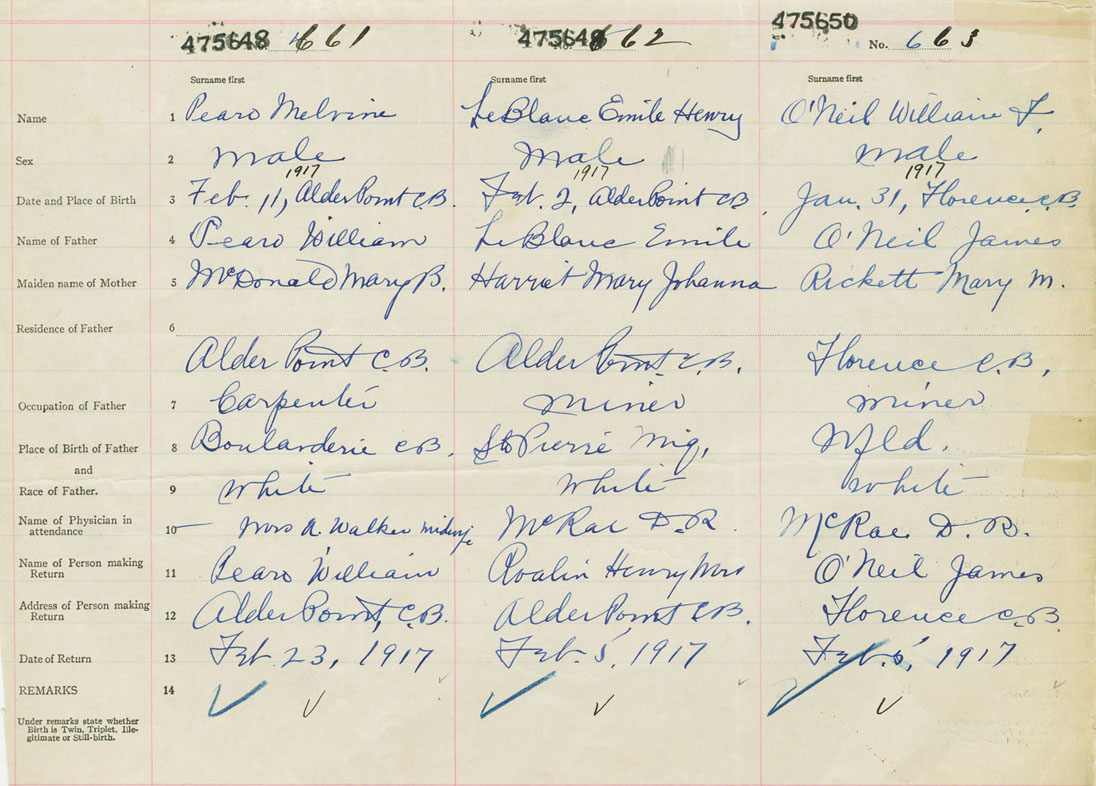 475648 661 475649 662 475650 No. 663
Surname first Surname first Surname first
Name 1 Pearo Melvine LeBlanc Emile Henry O'Neil William F.
Sex 2 male Male male
1917 1917 1917
Date and Place of Birth 3 Feb. 11, Alder Point C.B. Feb. 2, Alder Point C.B. Jan. 31, Florence C.B.
Name of Father 4 Pearo William LeBlanc Emile O'Neil James
Maiden name of Mother 5 McDonald Mary B. Harriet Mary Johanna Rickett Mary M.
Residence of Father 6
Alder Point C.B. Alder Point C.B. Florence C.B.
Occupation of Father 7 Carpenter miner miner
Place of Birth of Father 8 Boularderie C.B. St Pierre Miq. Nfld.
and
Race of Father. 9 white white white
Name of Physician in
attendance 10 Mrs A. Walker midwife McRae D. R. McRae D. R.
Name of Person making
Return 11 Pearo William Henry Mrs O'Neil James
Address of Person making
Return 12 Alder Point, C.B. Alder Point C.B. Florence C.B.
Date of Return 13 Feb. 23, 1917 Feb. 5, 1917 Feb. 5, 1917
REMARKS 14
Under remarks state whether
Birth is Twin, Triplet, Ille-
gitimate or Still-birth.